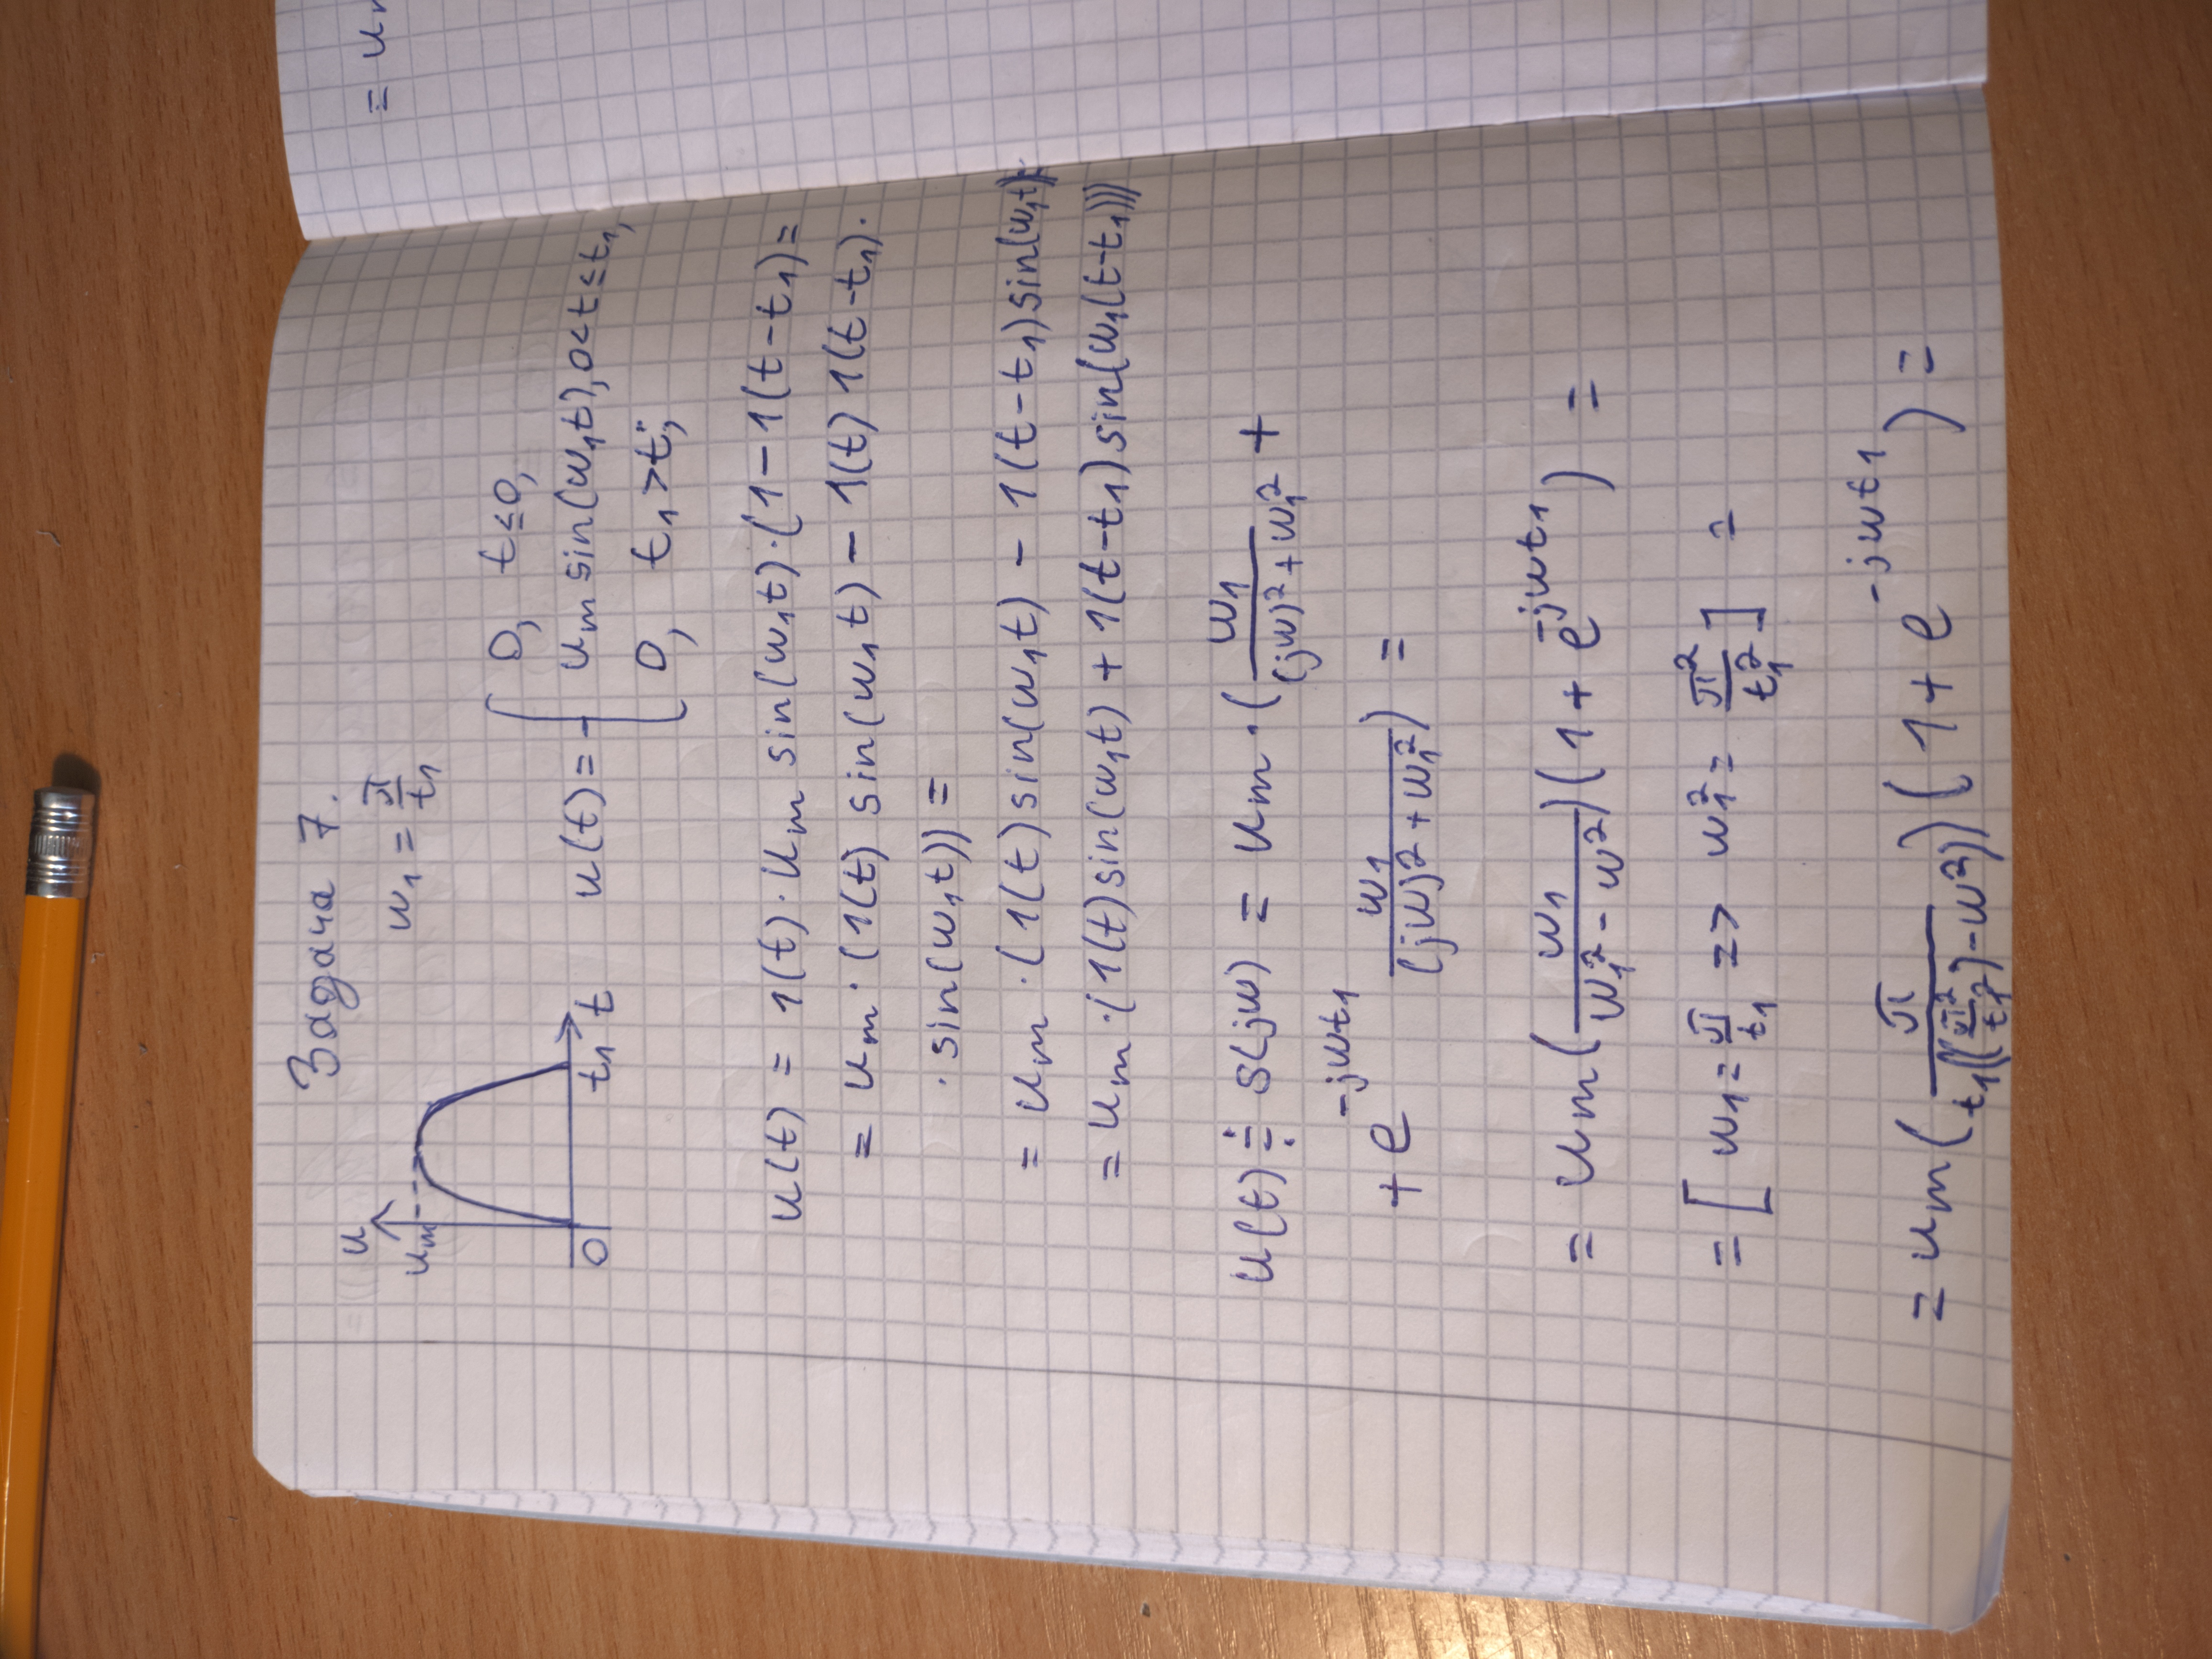 Задача 7.
u
u_m
0 t₁ t
w₁ = π/t₁
0, t≤0,
u(t) = { u_m sin(w₁t), 0<t≤t₁,
0, t₁>t;
u(t) = 1(t)·u_m sin(w₁t)·(1-1(t-t₁)=
= u_m·(1(t) sin(w₁t) - 1(t) 1(t-t₁)·
·sin(w₁t)) =
= u_m·(1(t)sin(w₁t) - 1(t-t₁)sin(w₁t))=
= u_m·(1(t)sin(w₁t) + 1(t-t₁)sin(w₁(t-t₁)))
u(t) ≑ S(jw) = u_m·(w₁/((jw)²+w₁²) +
+ e^(-jwt₁) w₁/((jw)²+w₁²)) =
= u_m(w₁/(w₁²-w²))(1+e^(-jwt₁)) =
= [w₁=π/t₁ => w₁²=π²/t₁²] =
= u_m(π/(t₁((π²/t₁²)-w²)))(1+e^(-jwt₁)) =